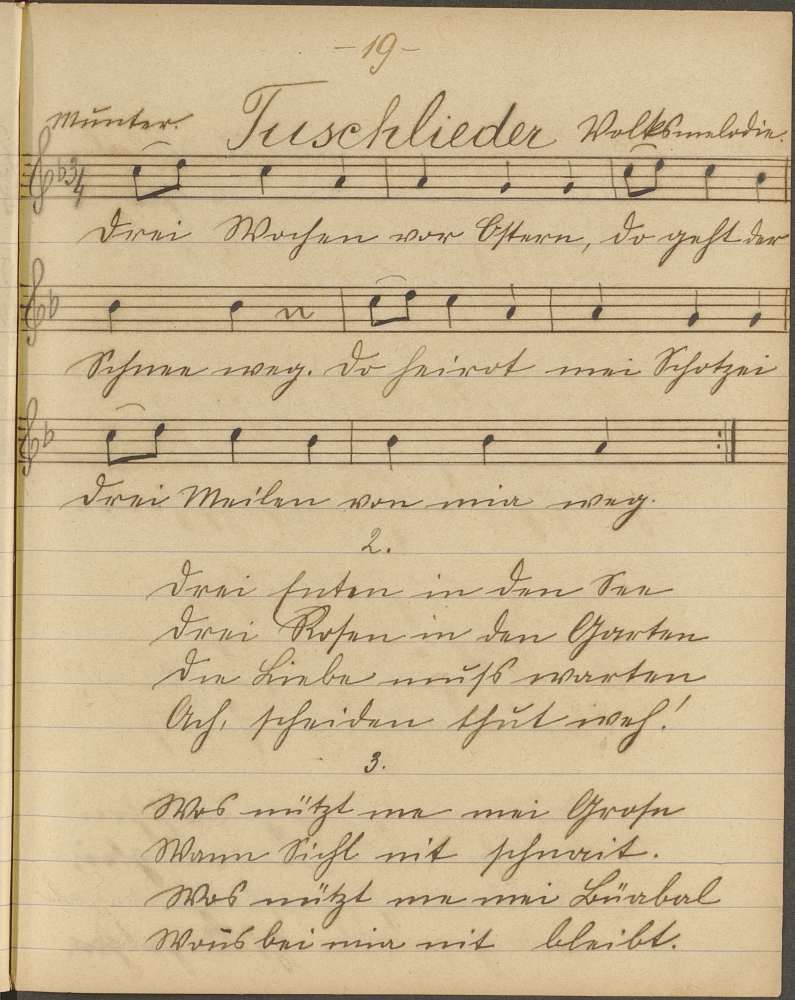 -19-
Munter. Tuschlieder Volksmelodie.
3/4
Drei Wochen vor Ostern, do geht der
Schnee weg. Do heirot mei Schotzei
drei Meilen von mia weg.
2.
Drei Enten in den See
Drei Rosen in den Garten
Die Liebe muss warten
Ach, scheiden thut weh!
3.
Wos nützt me mei Grosn
Wann Sichl nit schnait.
Wos nützt me mei Büabal
Wons bei mia nit bleibt.